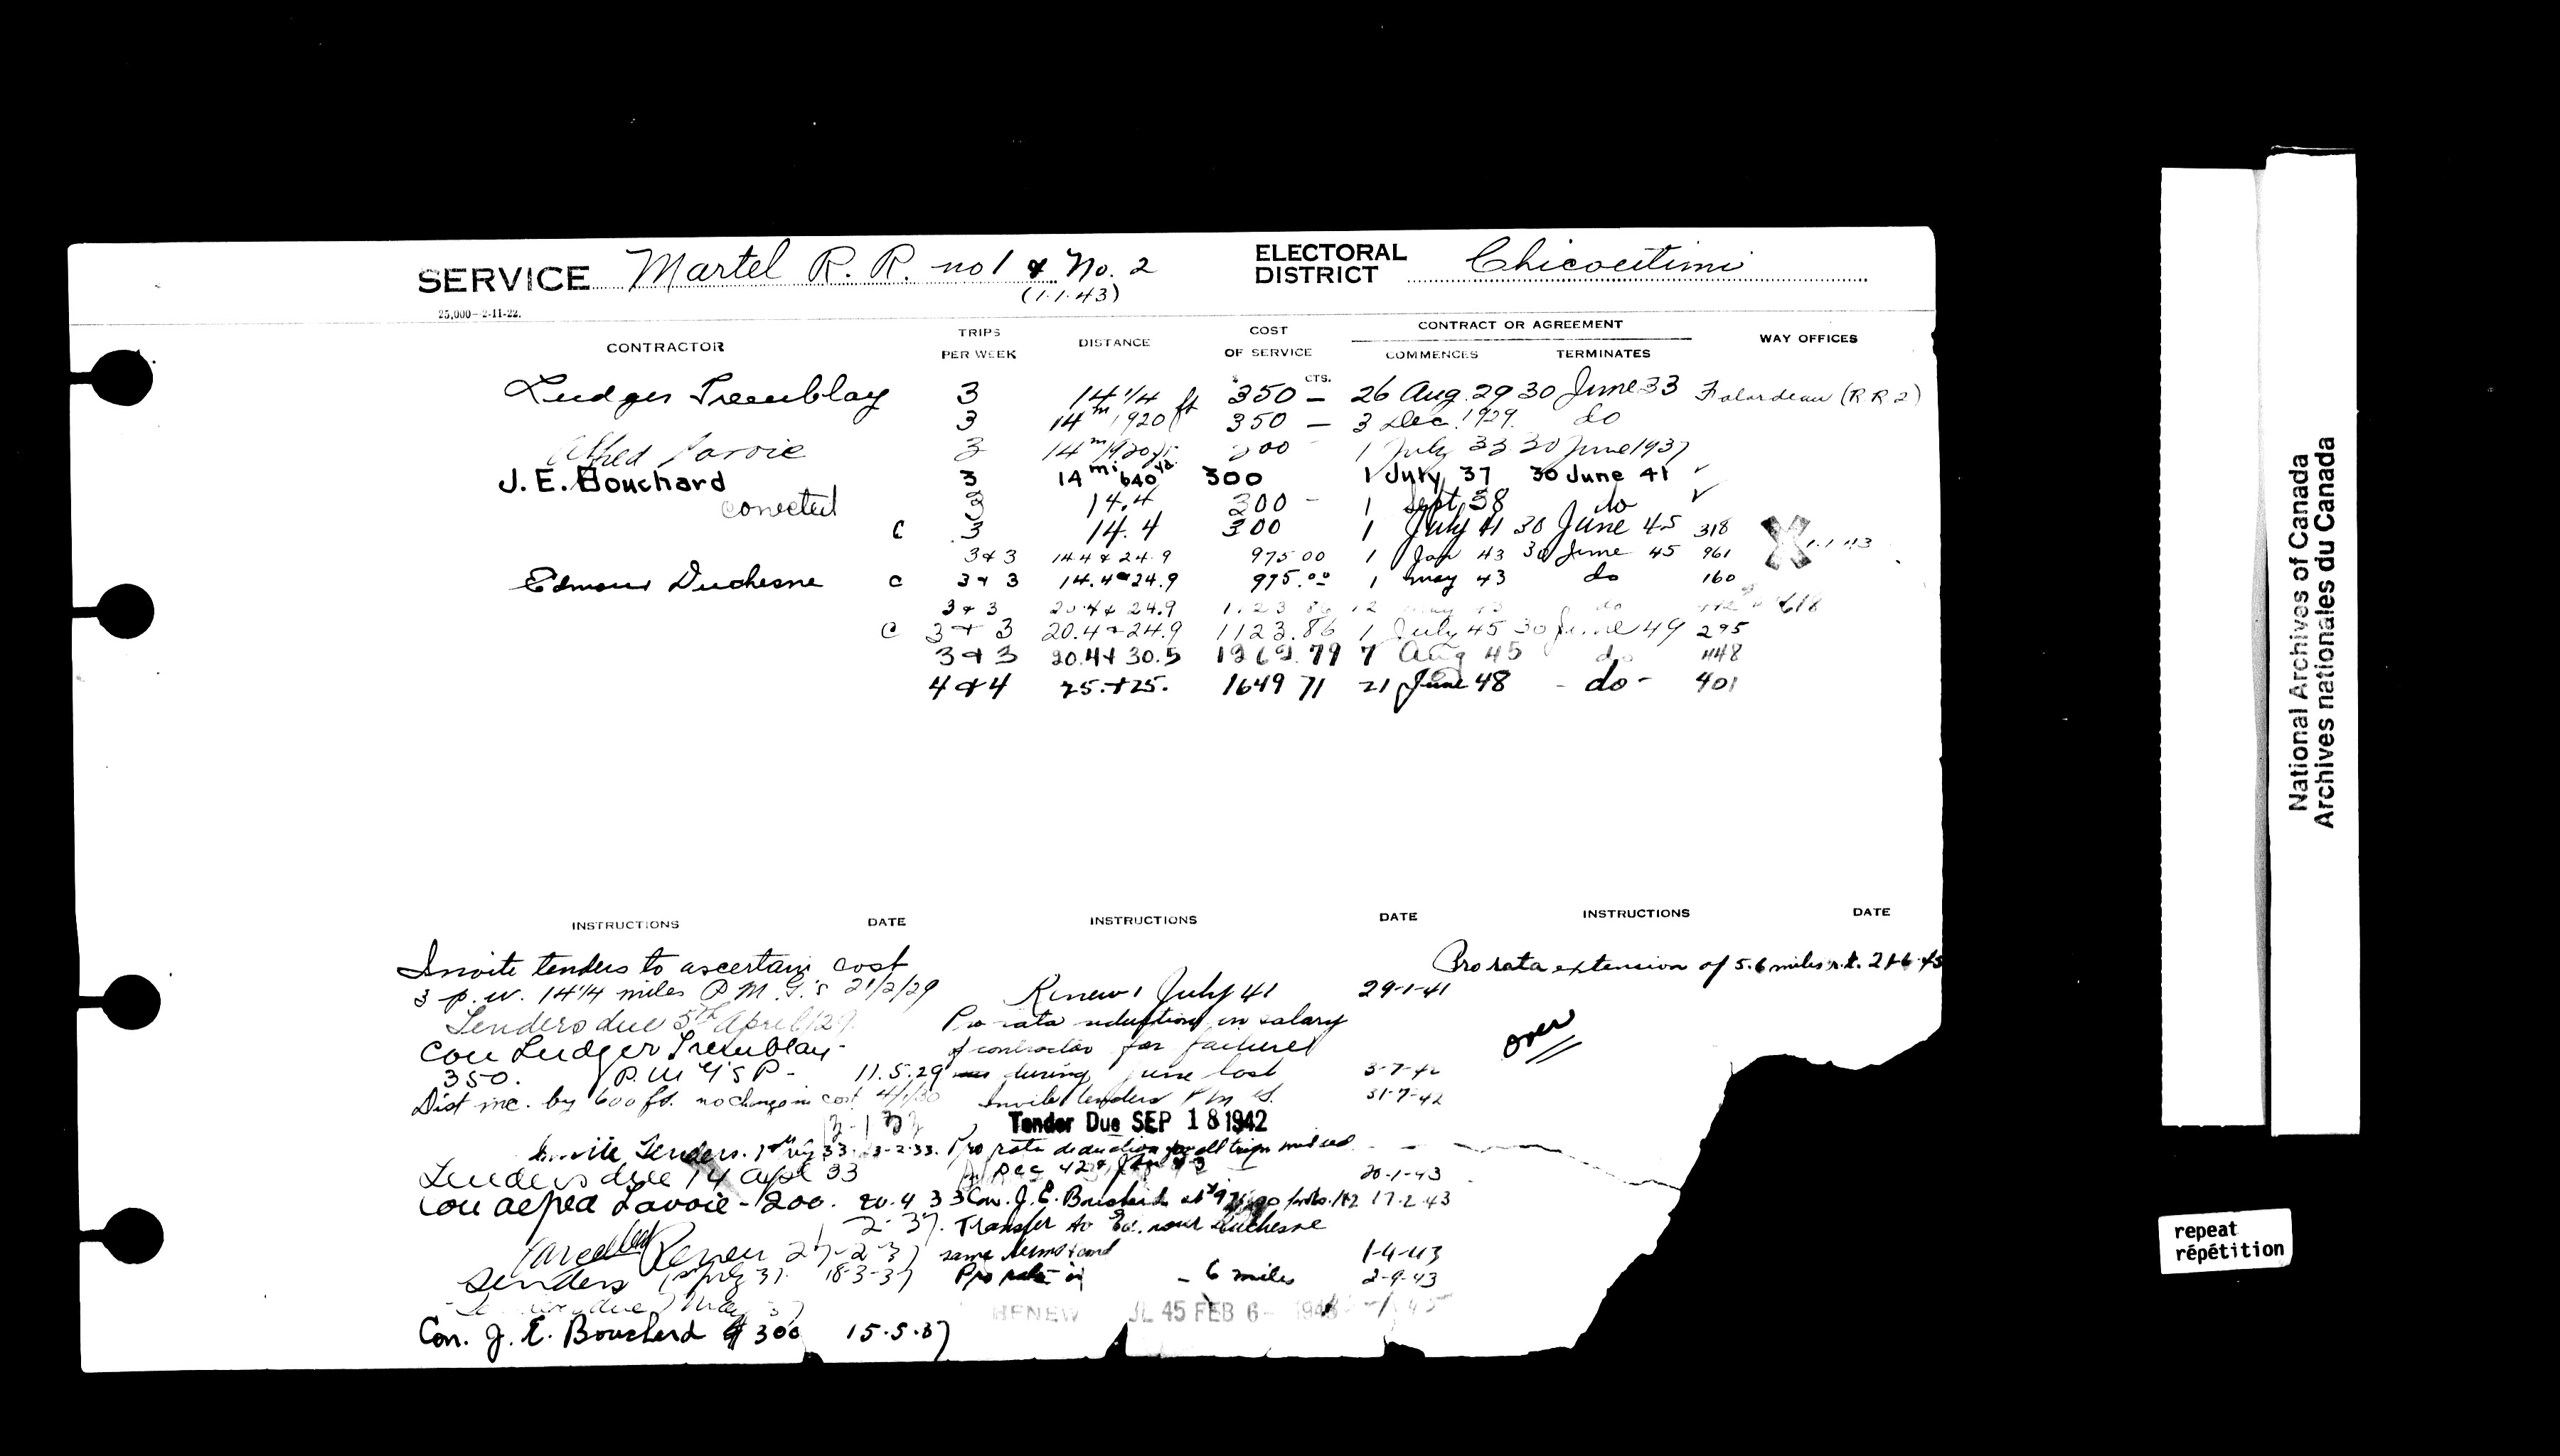 SERVICE Martel R. R. no 1 & No. 2
(1.1.43)
ELECTORAL DISTRICT Chicoutimi
25,000-2-11-22.
CONTRACTOR TRIPS PER WEEK DISTANCE COST OF SERVICE CONTRACT OR AGREEMENT COMMENCES TERMINATES WAY OFFICES
$ CTS.
Ludger Tremblay 3 14 1/4 350 — 26 Aug. 29 30 June 33 Falardeau (R R 2)
3 14 m 1920 ft 350 — 3 Dec. 1929. do
Alfred Lavoie 3 14 m 1920 200 - 1 July 33 30 June 1937
J. E. Bouchard 3 14 mi 640 yd. 300 1 July 37 30 June 41 ✓
corrected 3 14.4 300 - 1 Sept. 38 do ✓
C 3 14.4 300 1 July 41 30 June 45 318
3 & 3 14.4 & 24.9 975 00 1 Jan 43 30 June 45 961 1.1.43
Edmour Duchesne C 3 & 3 14.4 & 24.9 975.00 1 May 43 do 160
3 & 3 20.4 & 24.9 1123 86 12 do 618
C 3 + 3 20.4 + 24.9 1123.86 1 July 45 30 June 49 295
3 & 3 20.4 & 30.5 1269.79 7 Aug 45 do 448
4 & 4 25. + 25. 1649 71 21 June 48 - do - 401
INSTRUCTIONS DATE INSTRUCTIONS DATE INSTRUCTIONS DATE
Invite tenders to ascertain cost
3 p. w. 14 1/4 miles P. M. G.'s 21/2/29
Tenders due 5th April/29.
Con Ludger Tremblay -
350. P. M. G's P - 11.5.29
Dist inc. by 600 ft. no change in cost 4/1/30
Invite Tenders. 1st July 33. 3-2-33.
Tenders due 14 Apl 33
Con Alfred Lavoie - 200. 20.4 33
2-37.
Cancelled Renew 2-37
Tenders 1st July 37. 18-3-37
due 7 May 37
Con. J. E. Bouchard $300 15.5.37
Renew 1 July 41 29-1-41
Pro rata reduction in salary
of contractor for failures
during June last 3-7-42
Invite tenders P M G. 31-7-42
Tender Due SEP 18 1942
Pro rata deduction for all trips missed
in Dec 42 & Jan 43 20-1-43
Con. J. E. Bouchard at 17.2.43
Transfer to Edmour Duchesne
same terms & cond 1-4-43
Pro rata in - 6 miles 2-9-43
RENEW JL 45 FEB 6 -
Pro rata extension of 5.6 miles r.t. 21-6-45
Over
National Archives of Canada
Archives nationales du Canada
repeat
répétition